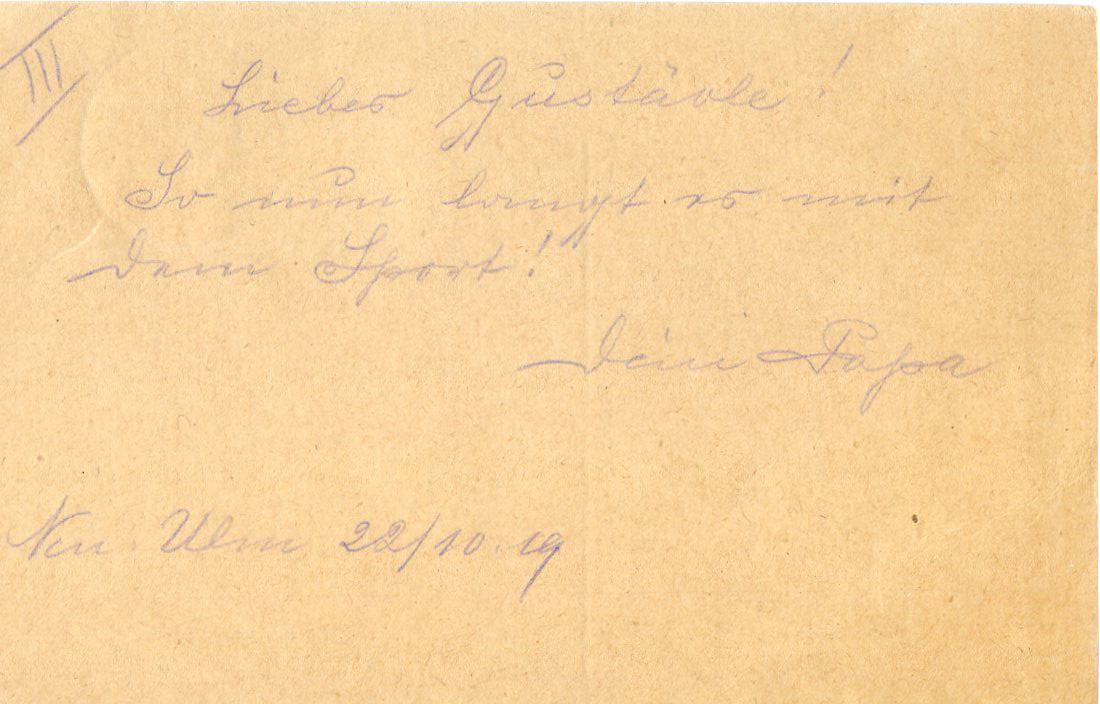 III
Liebes Gustävle!
So nun langt es mit
dem Sport!
Dein Papa
Neu-Ulm 22/10.19